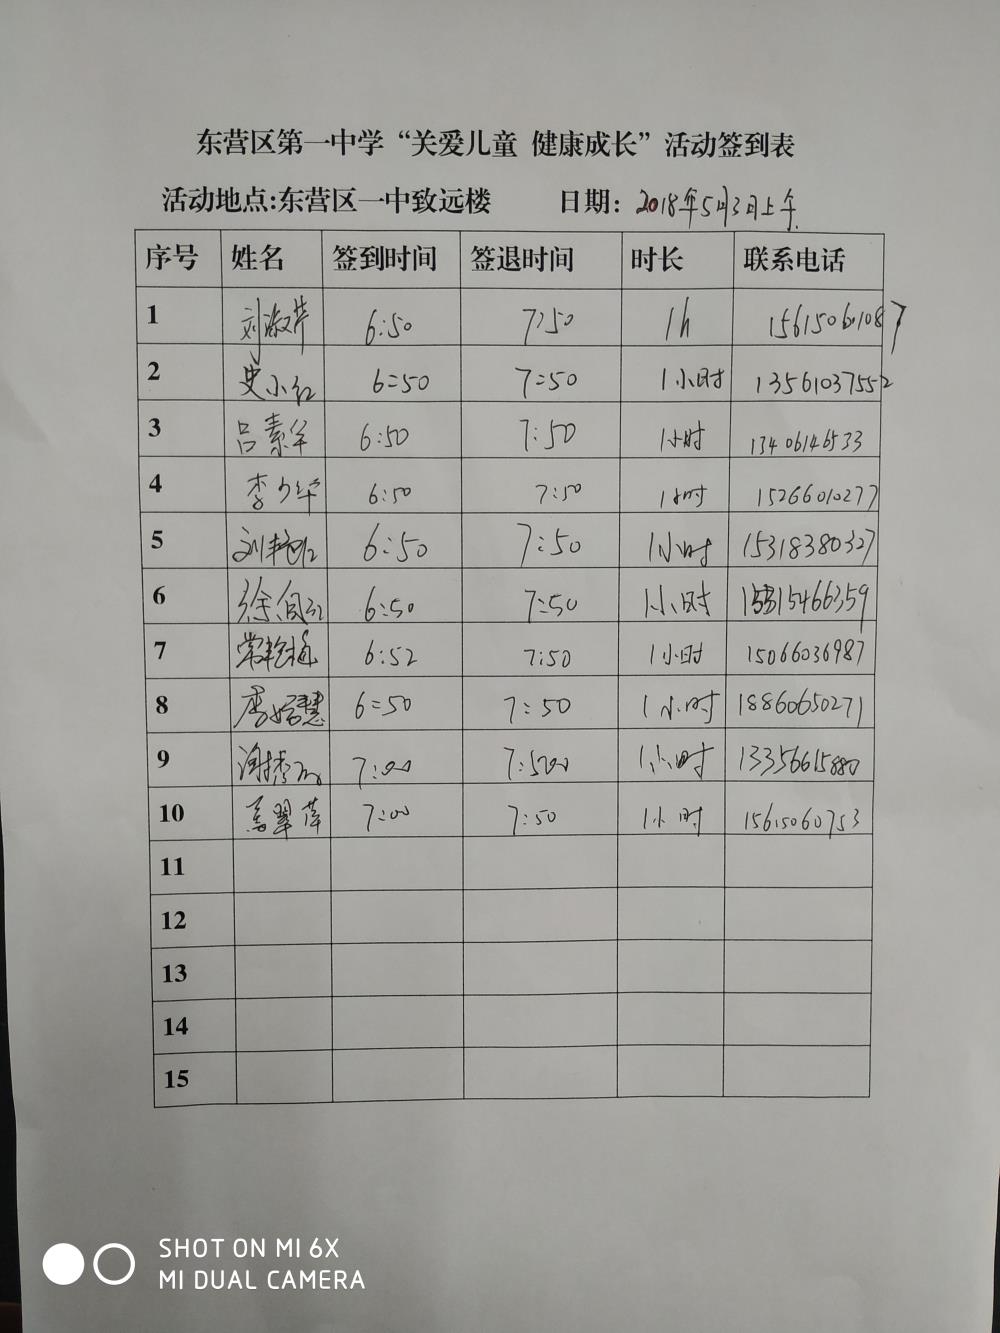 东营区第一中学“关爱儿童 健康成长”活动签到表
活动地点:东营区一中致远楼 日期: 2018年5月3日上午
序号 姓名 签到时间 签退时间 时长 联系电话
1 刘淑芹 6:50 7:50 1h 156150601087
2 史小红 6:50 7:50 1小时 13561037552
3 吕素华 6:50 7:50 1小时 13406146533
4 李少华 6:50 7:50 1小时 15266010277
5 6:50 7:50 1小时 15318380327
6 6:50 7:50 1小时
7 常艳梅 6:52 7:50 1小时 15066036987
8 6:50 7:50 1小时 18860650271
9 7:00 1小时
10 7:00 7:50 1小时 15615060753
11
12
13
14
15
SHOT ON MI 6X
MI DUAL CAMERA